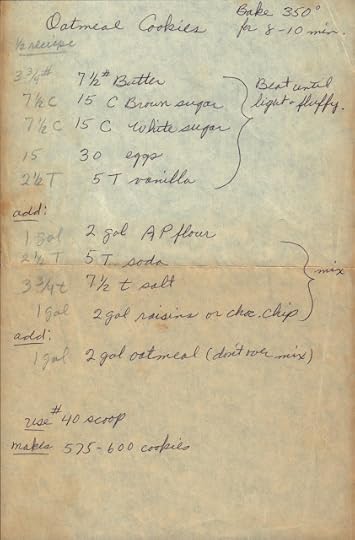 Oatmeal Cookies
Bake 350°
for 8-10 min.
½ recipe
3¾# 7½# Butter
7½ C 15 C Brown sugar
7½ C 15 C White sugar
Beat until
light & fluffy.
15 30 eggs
2½ T 5 T vanilla
add:
1 gal 2 gal AP flour
2½ T 5 T. soda
3¾ t 7½ t salt
mix
1 gal 2 gal raisins or choc. chip
add:
1 gal 2 gal oatmeal (don't over mix)
use #40 scoop
makes 575-600 cookies